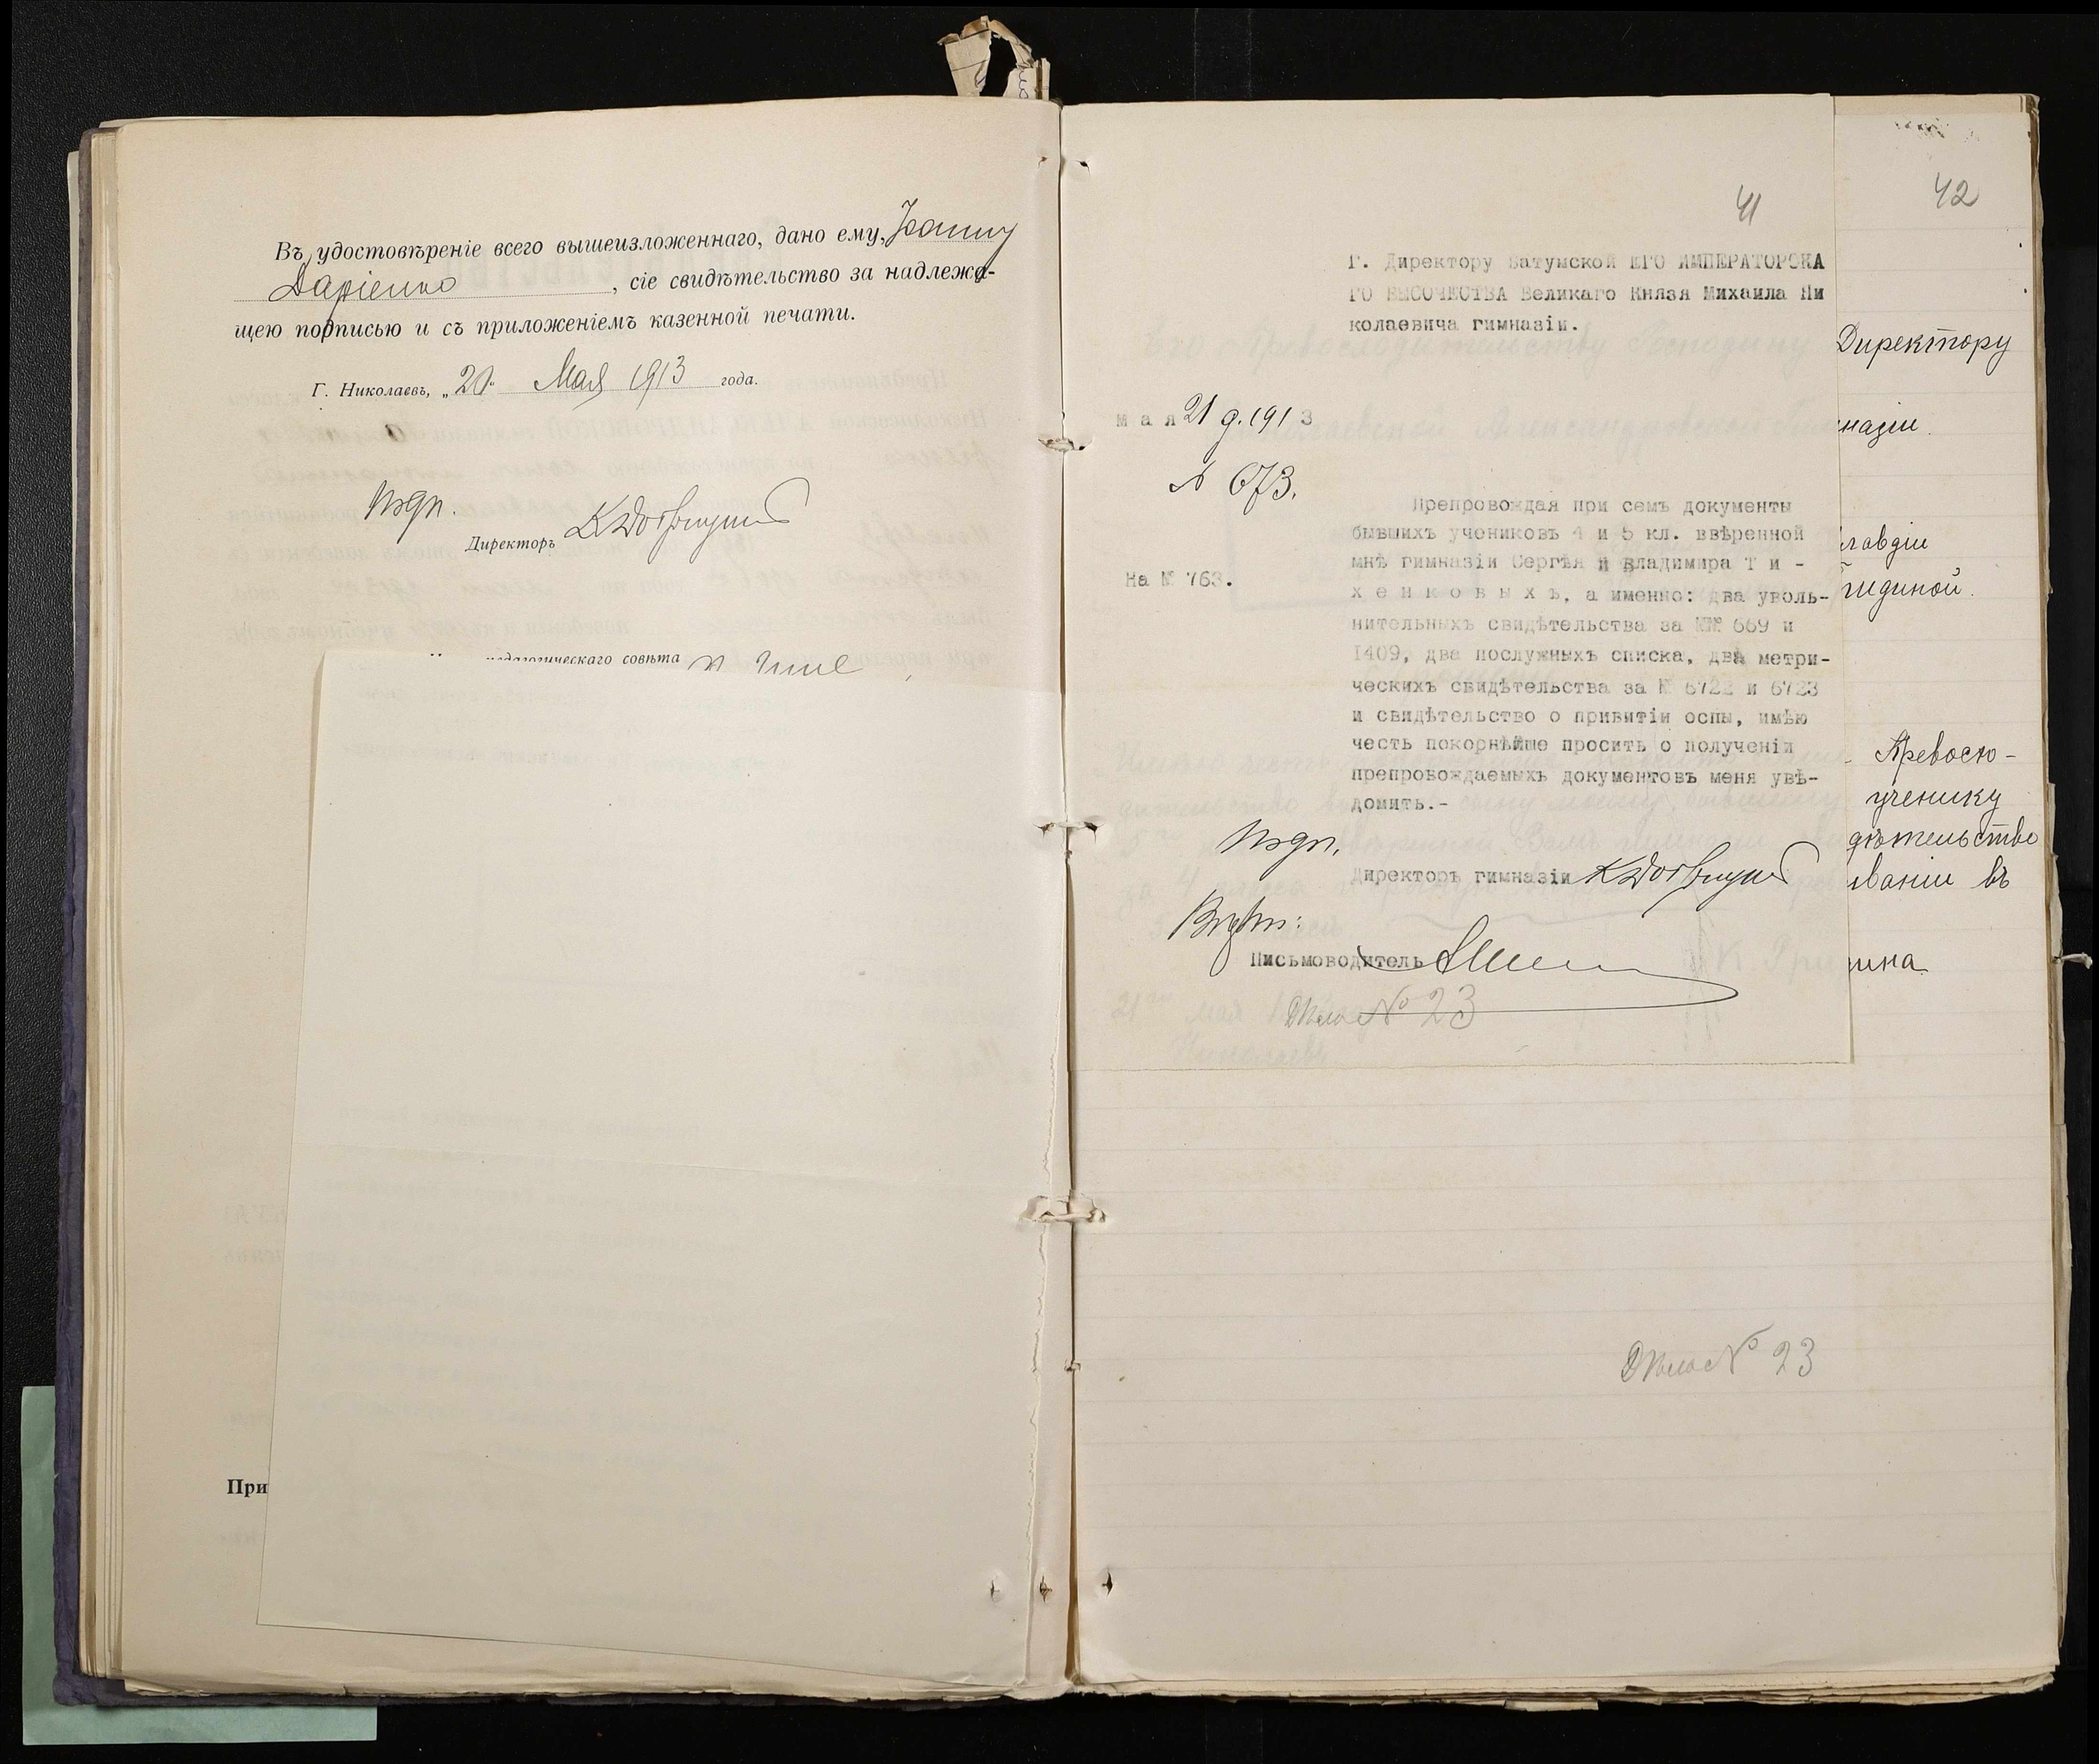 Въ удостовѣреніе всего вышеизложеннаго, дано ему, Іоанну
Даріенко, сіе свидѣтельство за надлежа-
щею подписью и съ приложеніемъ казенной печати.
Г. Николаевъ, „20" Мая 1913 года.
Подп.
Директоръ
педагогическаго совѣта
При
41
Г. Директору Батумской ЕГО ИМПЕРАТОРСКА
ГО ВЫСОЧЕСТВА Великаго Князя Михаила Ни
колаевича гимназіи.
мая 21 д. 1913
№ 673.
На № 763.
Препровождая при семъ документы
бывшихъ учениковъ 4 и 5 кл. ввѣренной
мнѣ гимназіи Сергѣя и Владимира Т и -
х е н к о в ы х ъ, а именно: два уволь-
нительныхъ свидѣтельства за №№ 669 и
1409, два послужныхъ списка, два метри-
ческихъ свидѣтельства за № 6722 и 6723
и свидѣтельство о привитіи оспы, имѣю
честь покорнѣйше просить о полученіи
препровождаемыхъ документовъ меня увѣ-
домить.-
Подп.
Директоръ гимназіи
Вѣрно:
Письмоводитель
Дѣло № 23
42
Директору
назіи.
лавдіи
гидиной.
Превосхо-
ученику
дѣтельство
ываніи въ
ина
Дѣло № 23